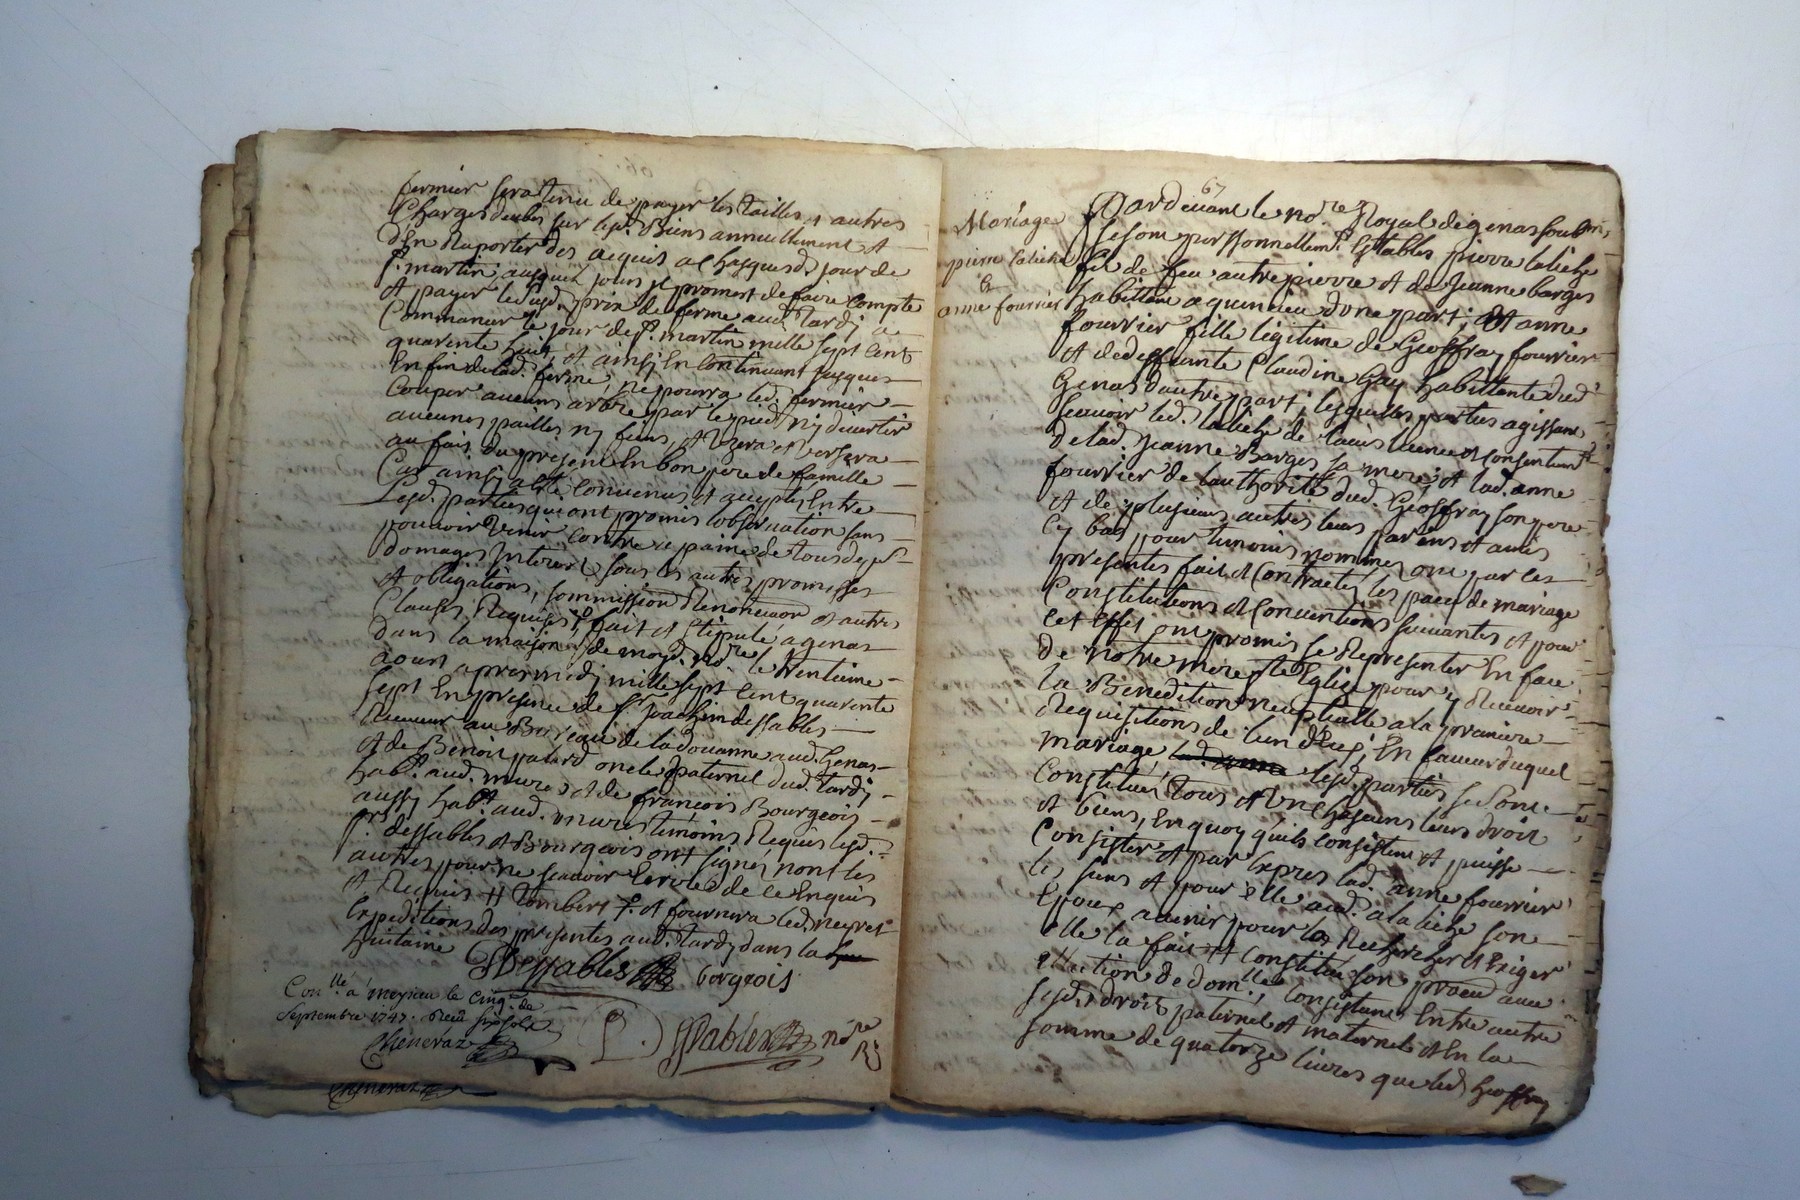 fermier sera tenu de payer les tailles & autres
Charges deubes sur lesd. Biens annuellement et
d'En Raporter des acquis a Chasques d. jour de
st. martin ausquel jours il promest de faire Compte
et payer led. prix de ferme aud. tardy a
Commancer le jour de st. martin mille sept cent
quarente huit, et ainsy En Continuant jusques
En fin de lad. ferme, ne pourra led. fermier
Couper aucuns arbre par le pied ny divertir
aucunes pailles ny fiens, et Uzera et Versera
au fait du present En bon pere de famille
Car ainsy a esté Convenus et acceptés Entre
Lesd. parties qui ont promis l'observation sans
pouvoir Venir Contre a paine de tous depts
domages Interest sous les autres promesses
et obligations, soummission Renonciaon et autres
Clauses Requises fait et stipulé a genas
dans la maison de moyd. nore. le trentieme
aoust apres midy mille sept cent quarente
sept En presence de sr. Joachim dessables
Receveur au Bureau de la douanne aud. Genas
et de Benoit patard oncle paternel dud. tardy
habt. aud. mures et de françois Bourgeois
aussy habt. aud. mures temoins Requis lesd.
srs. dessables et Bourgeois ont signés non les
autres pour ne scavoir Ecrore de ce Enquis
et Requis # tombers et fournira led. neyret
Expeditions des presentes aud. tardy dans la
huitaine
JDessables borgeois
Conllé. a meyzieu le cinqe. de
septembre 1747. Receu six sols
Cheneraz
Dessables nore Rl
Cheneraz
67
Mariage
pierre laliche
&
anne fourrier
Pardevant le nore. Royal de genas soubné.
se sont perssonnellemt. Establis pierre laliche
fils de feu autre pierre et de Jeanne barges
habittant a quincieu d'une part; Et anne
fourrier fille legitime de Geoffray fourrier
et de deffunte Claudine Gay habittante dud.
Genas d'autre part; lesquelles parties agissant
Scavoir led. laliche de l'avis licence et consentemt.
de lad. Jeanne Barges sa mere; et lad. anne
fourrier de l'authorité dud. Geoffray son pere
et de plusieurs autres leurs parens et amis
cy bas pour temoins nommés ont par ces
presentes fait et Contractés les pacts de mariage
Constitutions et Conventions suivantes et pour
cet effet ont promis se Representer En face
de notre mere ste. Eglise pour y Recevoir
la Benedition nuptialle a la premiere
Requisitions de l'un d'Eux; En faveur duquel
mariage, lesd. parties se sont
Constitués tous et Un Chascuns leurs droit
et biens, En quoy qu'ils Consistent et puisse
Consister et par Expres lad. anne fourrier
les siens et pour elle aud. a laliche son
Epoux avenir pour les Rechercher et Exiger
elle la fait et Constitué son procur avec
ellection de domlle. Consistant Entre autre
sesd. droit paternel et maternel et En la
somme de quatorze livres que led. Geoffray